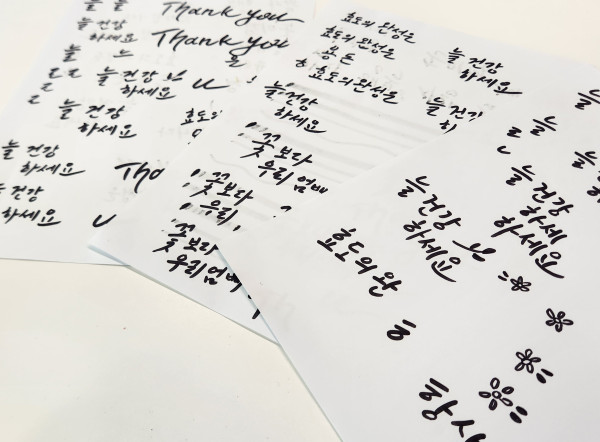 늘 늘 Thank you
늘 건강
하세요 Thank you
늘 느 늘
ㄹ ㄹ 늘 건강
하세요
ㄹ 늘 건강
하세요
늘 건강
하세요 Tha
늘 건강
하세요
효도의
효도의 완성은
효도의 완성은
용돈
효도의 완성은
늘 건강
하세요
늘 건강
하세요
늘 건강
하
꽃보다
우리 엄마
꽃보다
우리
꽃보다
우리 엄마
늘
늘
늘 건강
하세요
늘 건강
하세
하세요
효도의 완
항상